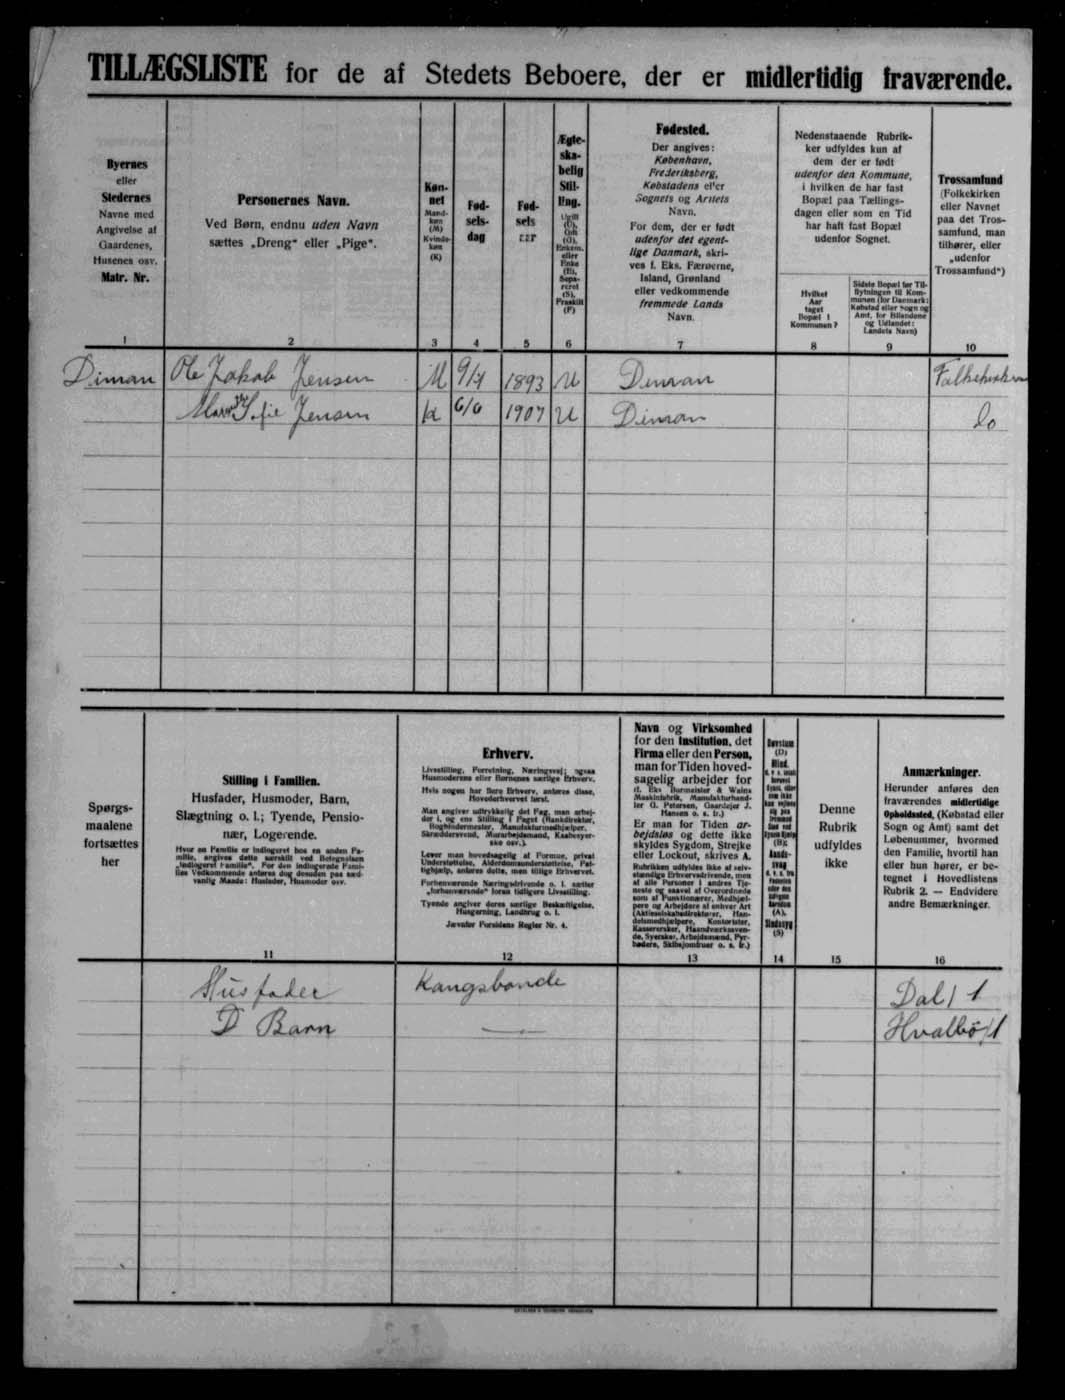 TILLÆGSLISTE for de af Stedets Beboere, der er midlertidig fraværende.
Byernes
eller
Stedernes
Navne med
Angivelse af
Gaardenes,
Husenes osv.
Matr. Nr.
1
Personernes Navn.
Ved Børn, endnu uden Navn
sættes „Dreng" eller „Pige".
2
Køn-
net
Mand-
køn
(M)
Kvinde-
køn
(K)
3
Fød-
sels-
dag
4
Fød-
sels
aar
5
Ægte-
ska-
belig
Stil-
ling.
Ugift
(U),
Gift
(G),
Enkem.
eller
Enke
(E),
Sepa-
reret
(S),
Fraskilt
(F)
6
Fødested.
Der angives:
København,
Frederiksberg,
Købstadens eller
Sognets og Amtets
Navn.
For dem, der er født
udenfor det egent-
lige Danmark, skri-
ves f. Eks. Færøerne,
Island, Grønland
eller vedkommende
fremmede Lands
Navn.
7
Nedenstaaende Rubrik-
ker udfyldes kun af
dem der er født
udenfor den Kommune,
i hvilken de har fast
Bopæl paa Tællings-
dagen eller som en Tid
har haft fast Bopæl
udenfor Sognet.
Hvilket
Aar
taget
Bopæl i
Kommunen?
8
Sidste Bopæl før Til-
flytningen til Kom-
munen (for Danmark:
Købstad eller Sogn og
Amt, for Bilandene
og Udlandet:
Landets Navn)
9
Trossamfund
(Folkekirken
eller Navnet
paa det Tros-
samfund, man
tilhører, eller
„udenfor
Trossamfund")
10
Dimon Ole Jakob Jensen M 9/4 1893 U Dimon Folkekirken
Sofie Jensen K 6/6 1907 U Dimon Do
Spørgs-
maalene
fortsættes
her
Stilling i Familien.
Husfader, Husmoder, Barn,
Slægtning o. l.; Tyende, Pensio-
nær, Logerende.
Hvor en Familie er indlogeret hos en anden Fa-
milie, angives dette særskilt ved Betegnelsen
„indlogeret Familie". For den indlogerede Fami-
lies Vedkommende anføres dog desuden paa sæd-
vanlig Maade: Husfader, Husmoder osv.
11
Erhverv.
Livsstilling, Forretning, Næringsvej; ogsaa
Husmoderens eller Børnenes særlige Erhverv.
Hvis nogen har flere Erhverv, anføres disse,
Hovederhvervet først.
Man angiver udtrykkelig det Fag, man arbej-
der i, og ens Stilling i Faget (Bankdirektør,
Bogbindermester, Manufakturmedhjælper,
Skræddersvend, Murarbejdsmand, Kaabesyer-
ske osv.).
Lever man hovedsagelig af Formue, privat
Understøttelse, Alderdomsunderstøttelse, Fat-
tighjælp, anføres dette, men tillige Erhvervet.
Forhenværende Næringsdrivende o. l. sætter
„forhenværende" foran tidligere Livsstilling.
Tyende angiver deres særlige Beskæftigelse,
Husgerning, Landbrug o. l.
Jævnfør Forsidens Regler Nr. 4.
12
Navn og Virksomhed
for den Institution, det
Firma eller den Person,
man for Tiden hoved-
sagelig arbejder for
(f. Eks. Burmeister & Wains
Maskinfabrik, Manufakturhand-
ler G. Petersen, Gaardejer J.
Hansen o. s. fr.)
Er man for Tiden ar-
bejdsløs og dette ikke
skyldes Sygdom, Strejke
eller Lockout, skrives A.
Rubrikken udfyldes ikke af selv-
stændige Erhvervsdrivende, men
af alle Personer i andres Tje-
neste og saavel af Overordnede
som af Funktionærer, Medhjæl-
pere og Arbejdere af enhver Art
(Aktieselskabsdirektører, Han-
delsmedhjælpere, Kontorister,
Kasserersker, Haandværkssven-
de, Syersker, Arbejdsmænd, Fyr-
bødere, Skibsjomfruer o. s. fr.)
13
Døvstum
(D)
Blind.
(B);
Aands-
svag
(A),
Sindssyg
(S)
14
Denne
Rubrik
udfyldes
ikke
15
Anmærkninger.
Herunder anføres den
fraværendes midlertidige
Opholdssted, (Købstad eller
Sogn og Amt) samt det
Løbenummer, hvormed
den Familie, hvortil han
eller hun hører, er be-
tegnet i Hovedlistens
Rubrik 2. — Endvidere
andre Bemærkninger.
16
Husfader Kongsbonde Dal/1
D Barn — Hvalbö/1